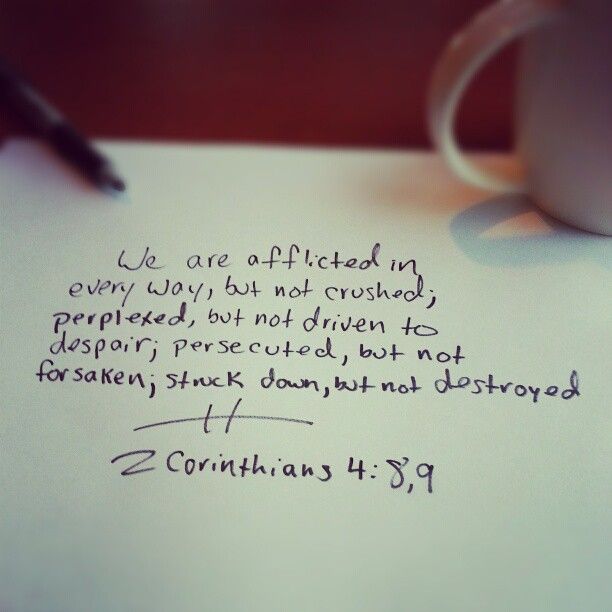 We are afflicted in
every way, but not crushed;
perplexed, but not driven to
despair; persecuted, but not
forsaken; struck down, but not destroyed
2 Corinthians 4:8,9